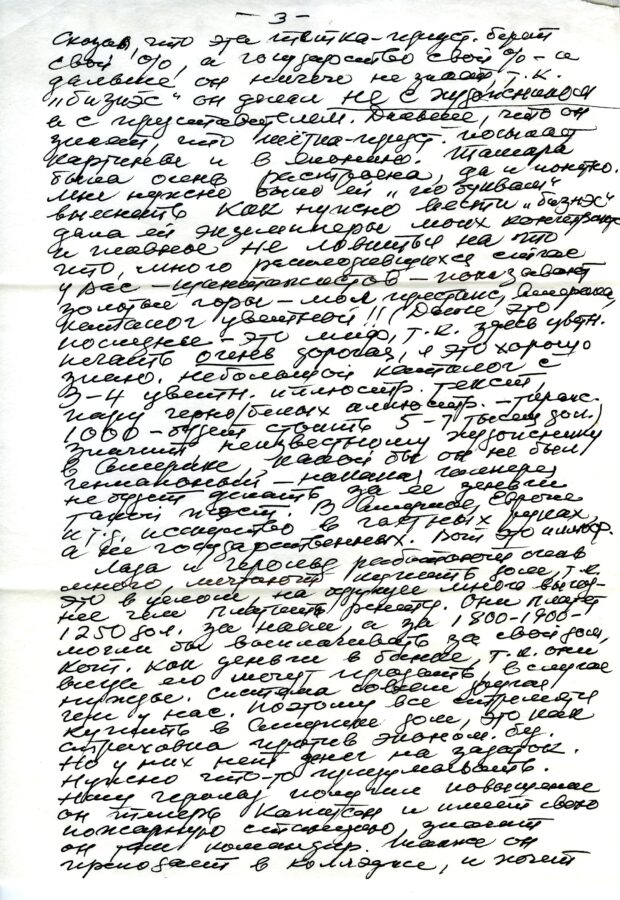 - 3 -
Сказав, что эта тётка-предст. берёт
свой %, а государство свой % - и
дальше он ничего не знает, т.к.
"бизнэс" он делал не с художником
а с представителем. Далее, что он
знает, что тётка-предст. посылает
картины и в Японию. Тамара
была очень расстроена, да и понятно.
Мне нужно было ей "по буквам"
выяснить как нужно вести "бизнэс"
дала ей экземпляры моих контрактов
и главное не ловиться на то
что, много расплодившихся сейчас
у вас - - показывают
золотые горы - мол престанс, Америка,
каталог цветной!! (Даже это
последнее - это миф, т.к. здесь цветн.
печать очень дорогая, я это хорошо
знаю. Небольшой каталог с
3-4 цветн. иллюстр. текст,
пару черно/белых иллюстр. - тираж.
1000 - будет стоить 5-7 тысяч дол.)
значит неизвестному художнику
в Америке, какой бы он не был
гениальный - никакая галлерея
не будет делать за её деньги
такой жест. В Америке, Европе
и т.д. искусство в частных руках,
а не государственных. Вот это
Лада и Геролд работают очень
много, мечтают купить дом, т.к.
это в целом, на будущее много выгод-
нее чем платить рент. Они платят
1250 дол. за наём, а за 1800-1900-
могли бы выплачивать за свой дом,
кот. как деньги в банке, т.к. они
всегда его могут продать, в случае
нужды. Система совсем другая
чем у нас. Поэтому все стремятся
купить в Америке дом, это как
страховка против эконом. бед.
Но у них нет денег на задаток.
Нужно что-то придумывать.
Наш Геролд получил повышение
он теперь Капитан и имеет свою
пожарную станцию, значит
он там командир. Также он
преподаёт в колледже, и хочет